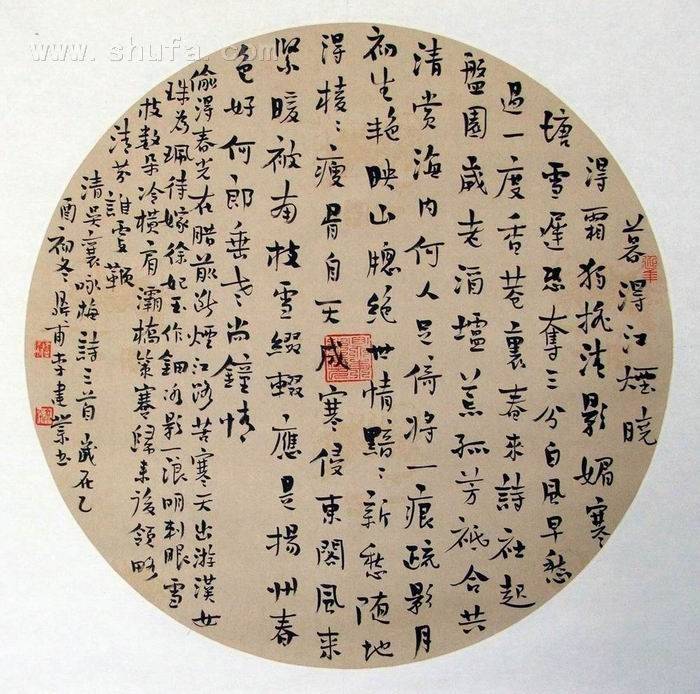 www.shufa.com
得江煙曉
得霜猶抗清影媚寒
塘雪遲恐奪三分白風早愁
過一度香菴裏春來詩社起
盤園歲老酒壚荒孤芳祗合共
清賞海内何人足倚將一痕疏影月
初生艳映山牕絕世情黯〻新愁隨地
得棱〻瘦骨自天成寒侵東閣風來
緊暖被南枝雪綴〻應是揚州春
色好何郎垂老尚鐘情
偷得春光在腊前煙江路苦寒天出游漢女
珠為珮待嫁徐妃玉作鈿影一浪明刺眼雪
枝數朵冷橫肩灞橋策蹇歸來後領略
清芬誰鞭
清吳襄咏梅詩三首歲在乙
酉初冬甫李建業書